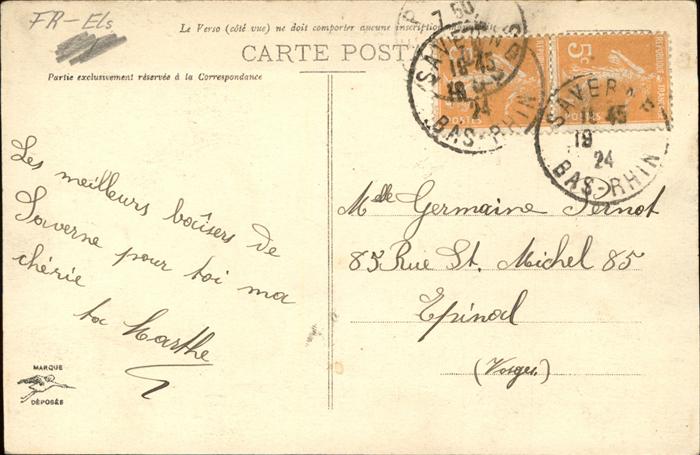 FR-Els
Le Verso (côté vue) ne doit comporter aucune inscription
CARTE POSTALE
Partie exclusivement réservée à la Correspondance
7 50
SAVERNE
18 45
19
24
BAS-RHIN
POSTES
5c
SAVERNE
45
19
24
BAS-RHIN
POSTES
Les meilleurs baisers de
Saverne pour toi ma
chérie
ta Marthe
Melle Germaine Pernot
85 Rue St. Michel 85
Epinal
(Vosges)
MARQUE
DÉPOSÉE